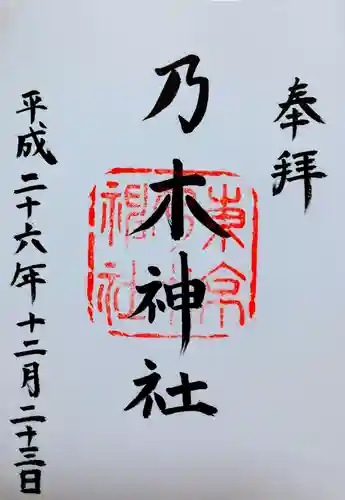 奉拝
乃木神社
東京乃木神社
平成二十六年十二月二十三日